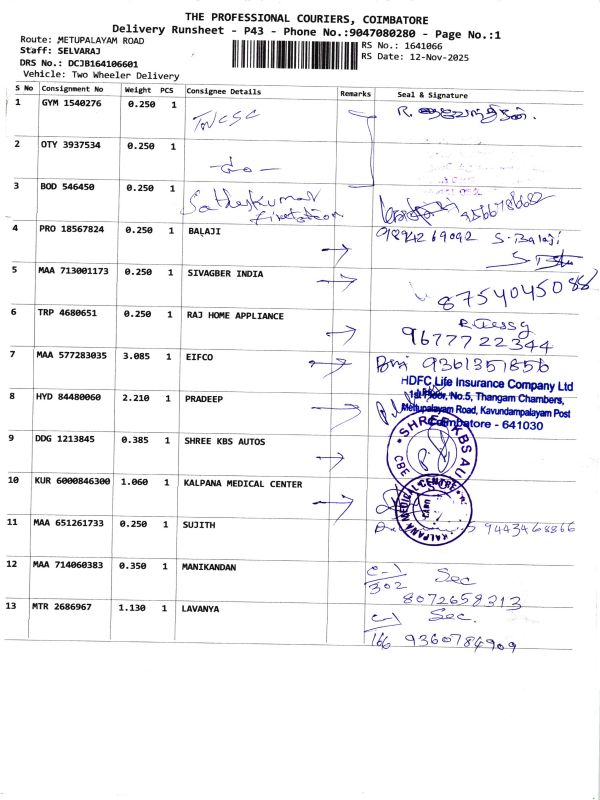 THE PROFESSIONAL COURIERS, COIMBATORE
Delivery Runsheet - P43 - Phone No.:9047080280 - Page No.:1
Route: METUPALAYAM ROAD
Staff: SELVARAJ
DRS No.: DCJB164106601
Vehicle: Two Wheeler Delivery
RS No.: 1641066
RS Date: 12-Nov-2025
S No Consignment No Weight PCS Consignee Details Remarks Seal & Signature
1 GYM 1540276 0.250 1 TNCSC R.
2 OTY 3937534 0.250 1
3 BOD 546450 0.250 1 Satheskumar
firestation
4 PRO 18567824 0.250 1 BALAJI 9894269092 S. Balaji
5 MAA 713001173 0.250 1 SIVAGBER INDIA 8754045088
6 TRP 4680651 0.250 1 RAJ HOME APPLIANCE
9677722344
7 MAA 577283035 3.085 1 EIFCO 9361351856
HDFC Life Insurance Company Ltd
1st Floor, No.5, Thangam Chambers,
8 HYD 84480060 2.210 1 PRADEEP Mettupalayam Road, Kavundampalayam Post
Coimbatore - 641030
9 DDG 1213845 0.385 1 SHREE KBS AUTOS SHREE KBS AU
CBE
10 KUR 6000846300 1.060 1 KALPANA MEDICAL CENTER KALPANA MEDICAL CENTRE
11 MAA 651261733 0.250 1 SUJITH 9443468866
12 MAA 714060383 0.350 1 MANIKANDAN C-1 Sec
302
8072658313
13 MTR 2686967 1.130 1 LAVANYA C-1 Sec.
166 9360784909